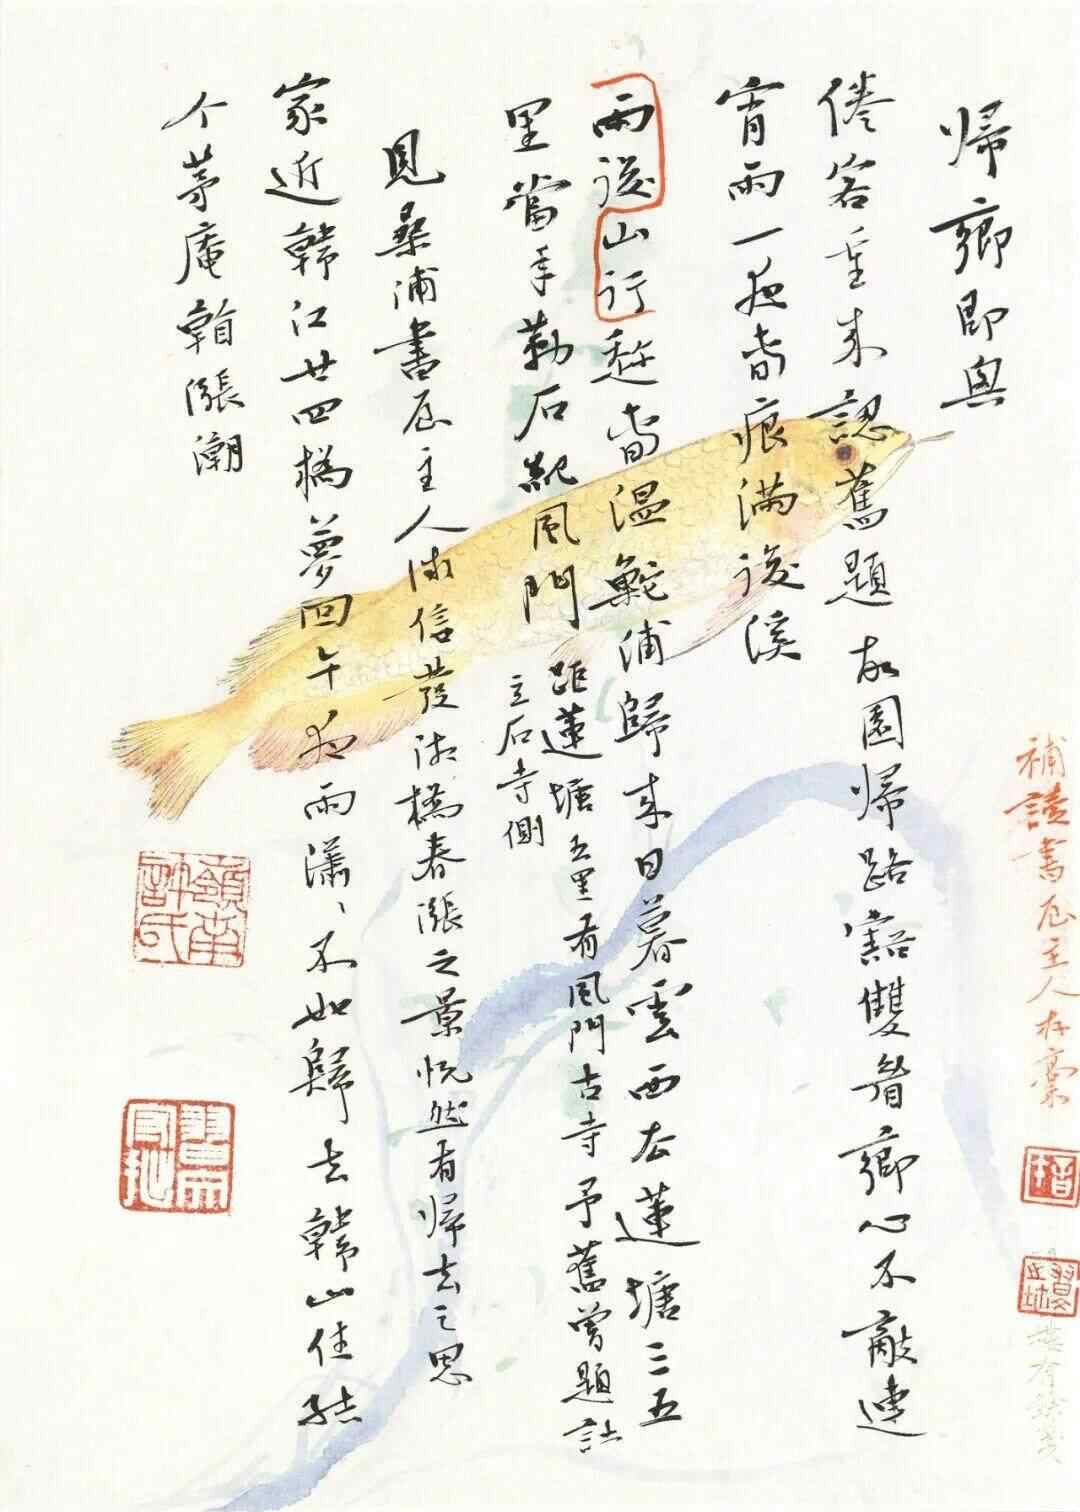 補讀書屋主人存稿
帰鄉即興
倦客重來認舊題故園帰路豁雙眉鄉心不敵連
宵雨一夜旾痕滿後溪
雨後山行趂旾溫鮀浦歸來日暮雲西去蓮塘三五
里當年勒石紀風門
距蓮塘五里有風門古寺予舊曾題詩
立石寺側
見桑浦書屋主人微信發湘橋春漲之景恍然有帰去之思
家近韓江廿四橋夢回午夜雨瀟、不如歸去韓山住結
个茅庵看漲潮
嶺南許氏